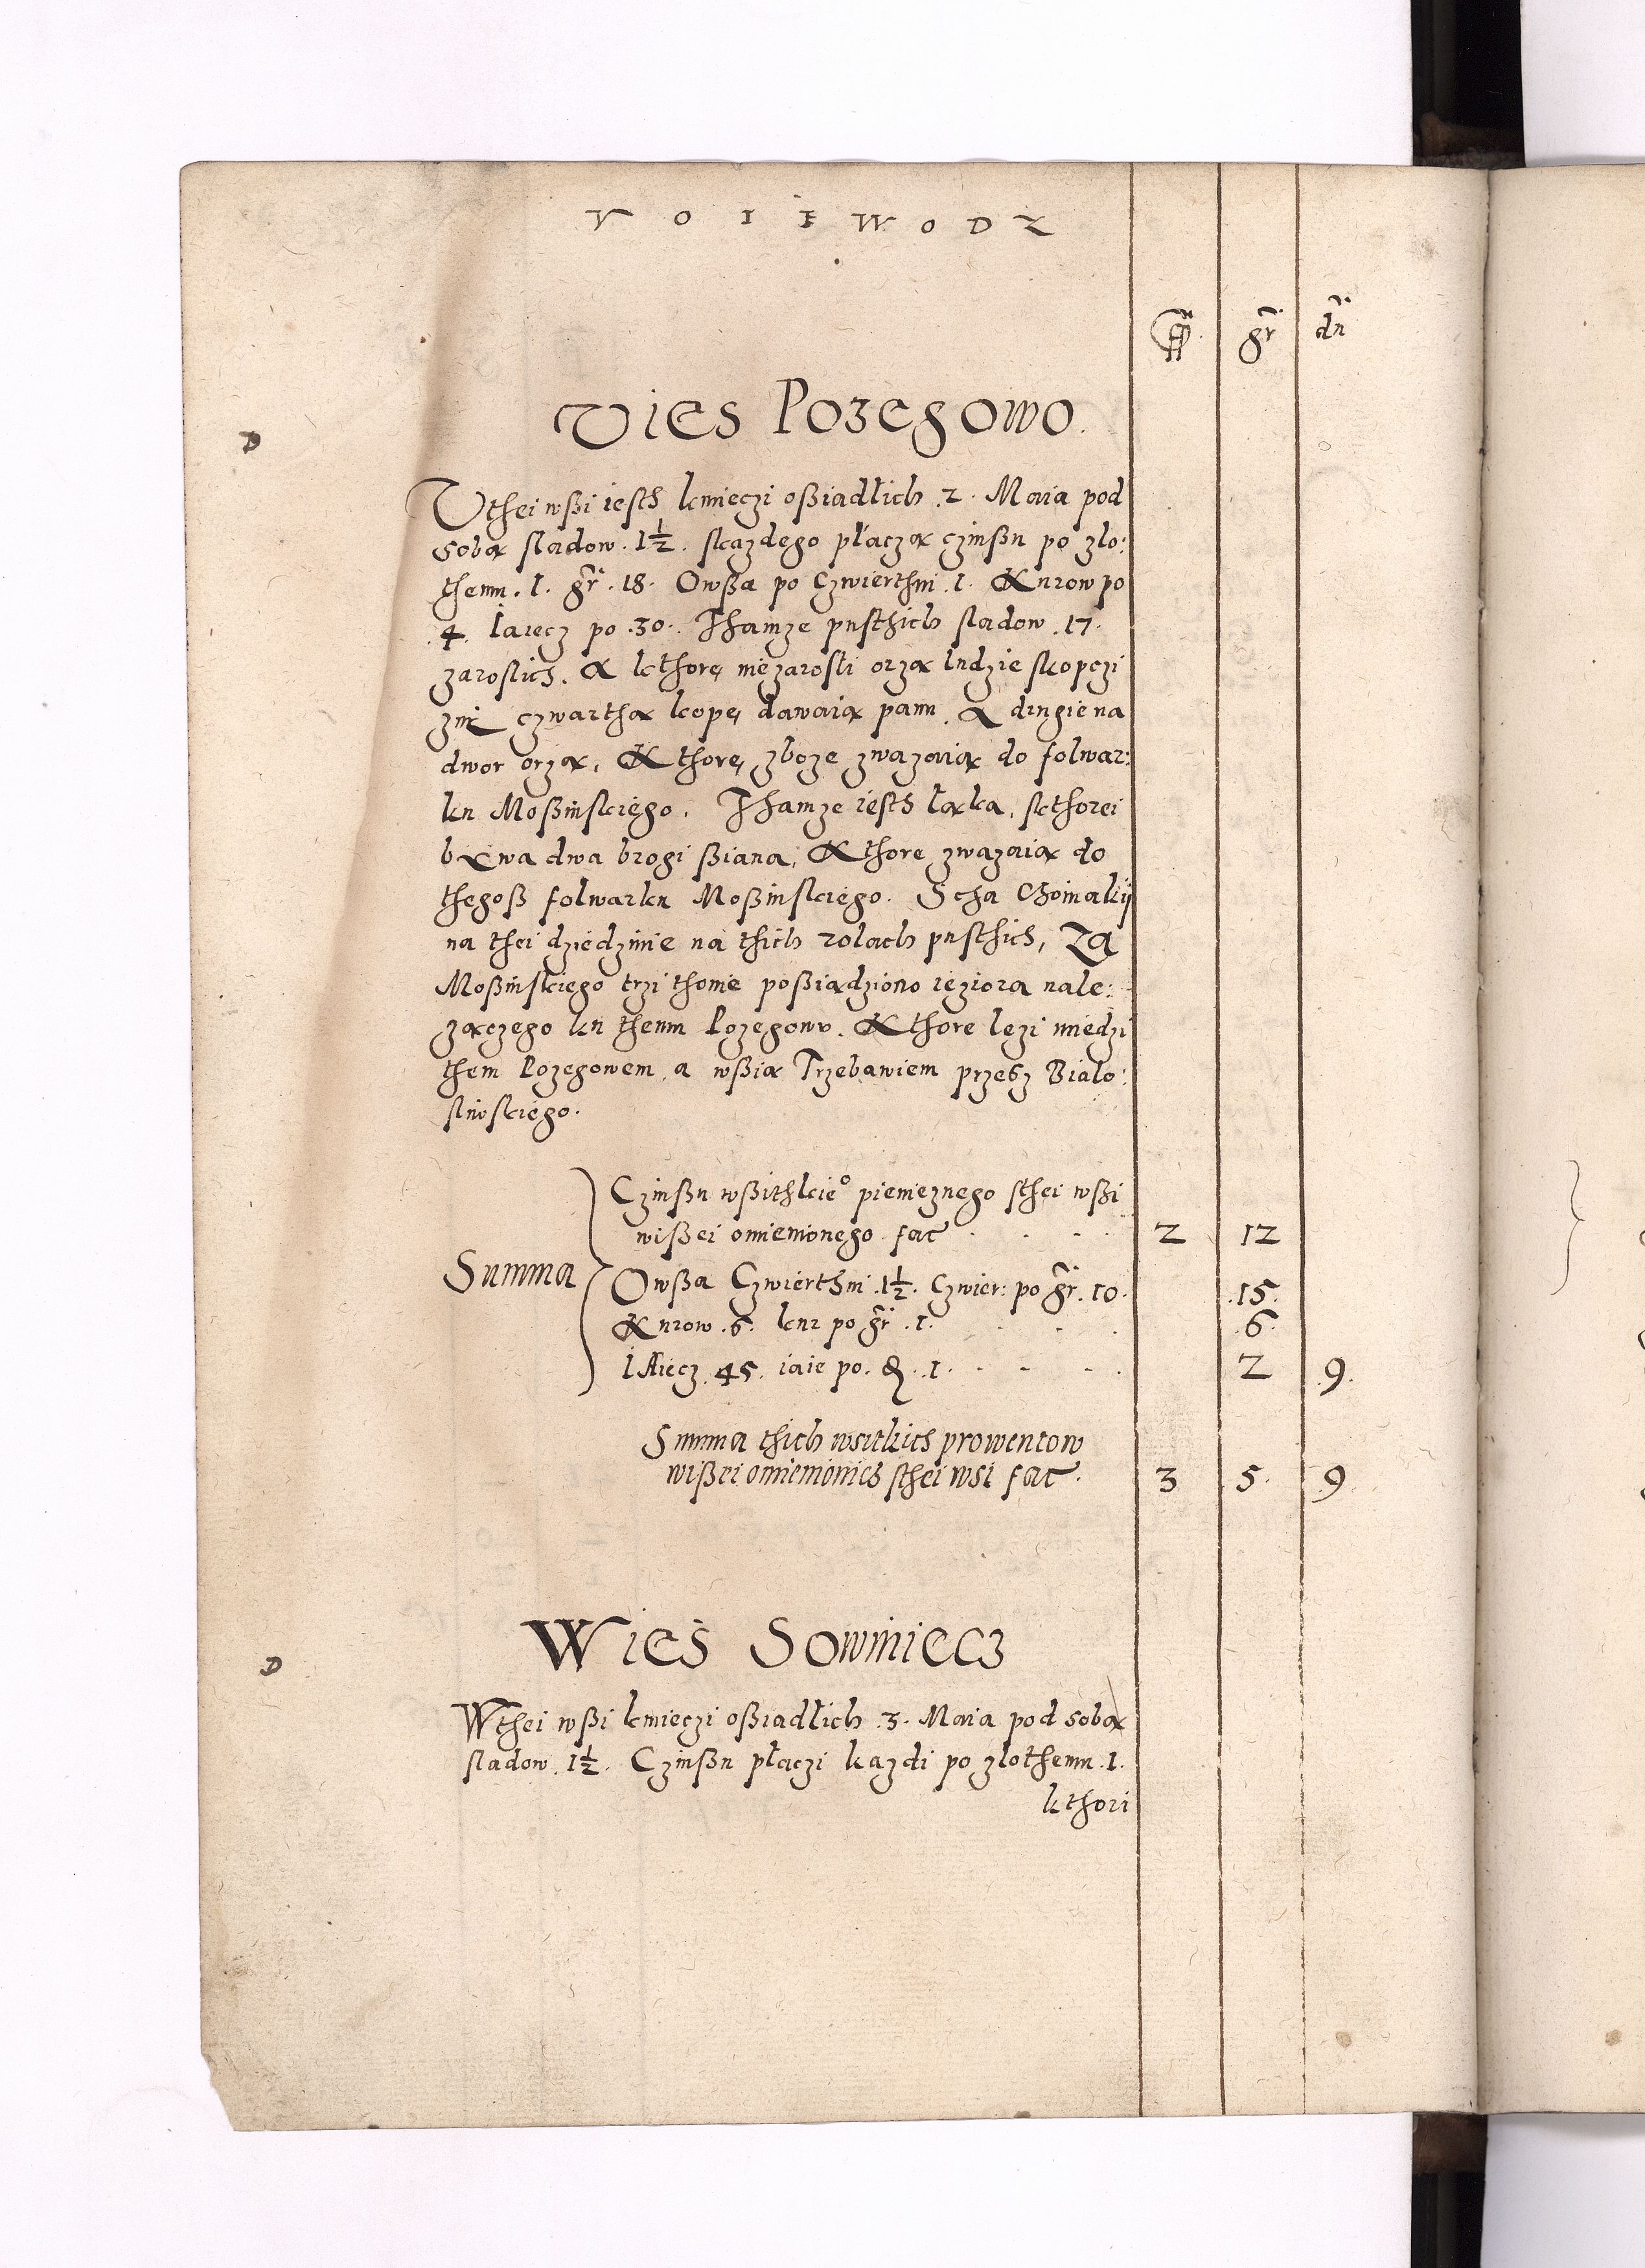 VOIEWODZ
gr dn
Vies Pozegowo.
D
Vthei wßi iesth kmieczi oßiadlich .2. Maia pod
sobą sladow .1½. skazdego płaczą czinßu po zlo:
themu .1. gr .18. Owßa po Czwierthni .1. Kurow po
.4. Jaiecz po .30. Thamze pusthich sladow .17.
zaroslich. A kthore niezarosli orzą ludzie skopczi
znię czwarthą kopę dawaią panu. A drugie na
dwor orzą, Kthore zboze zwazaią do folwar:
ku Moßinskiego. Thamze iesth łąka, skthorei
bywa dwa brogi ßiana, Kthore zwazaią do
thegoß folwarku Moßinskiego. Scha Choinakij
na thei dziedzinie na thich rolach pusthich, Za
Moßinskiego trzi thonie poßiadziono ieziora nale:
żączego ku themu Pozegowu. Kthore lezi miedzi
them Pozegowem, a wßią Trzebawiem przesz Bialo:
sliwskiego.
Summa
Czinßu wßithkieo pienieznego sthei wßi
wißei omienionego fac . . . . 2 12
Owßa Czwierthni .1½. Czwier: po gr .10. .15.
Kurow .6. kur po gr .1. . . . .6.
iAiecz .45. iaie po . .1. . . . . 2 9.
Summa thich wsitkich prowentow
wißei omienionich sthei wsi fac. 3 5. 9
Wies Sowiniecz
D
Wthei wßi kmieczi oßiadlich .3. Maia pod sobą
sladow .1½. Czinßu płaczi kazdi po zlothemu .1.
kthori